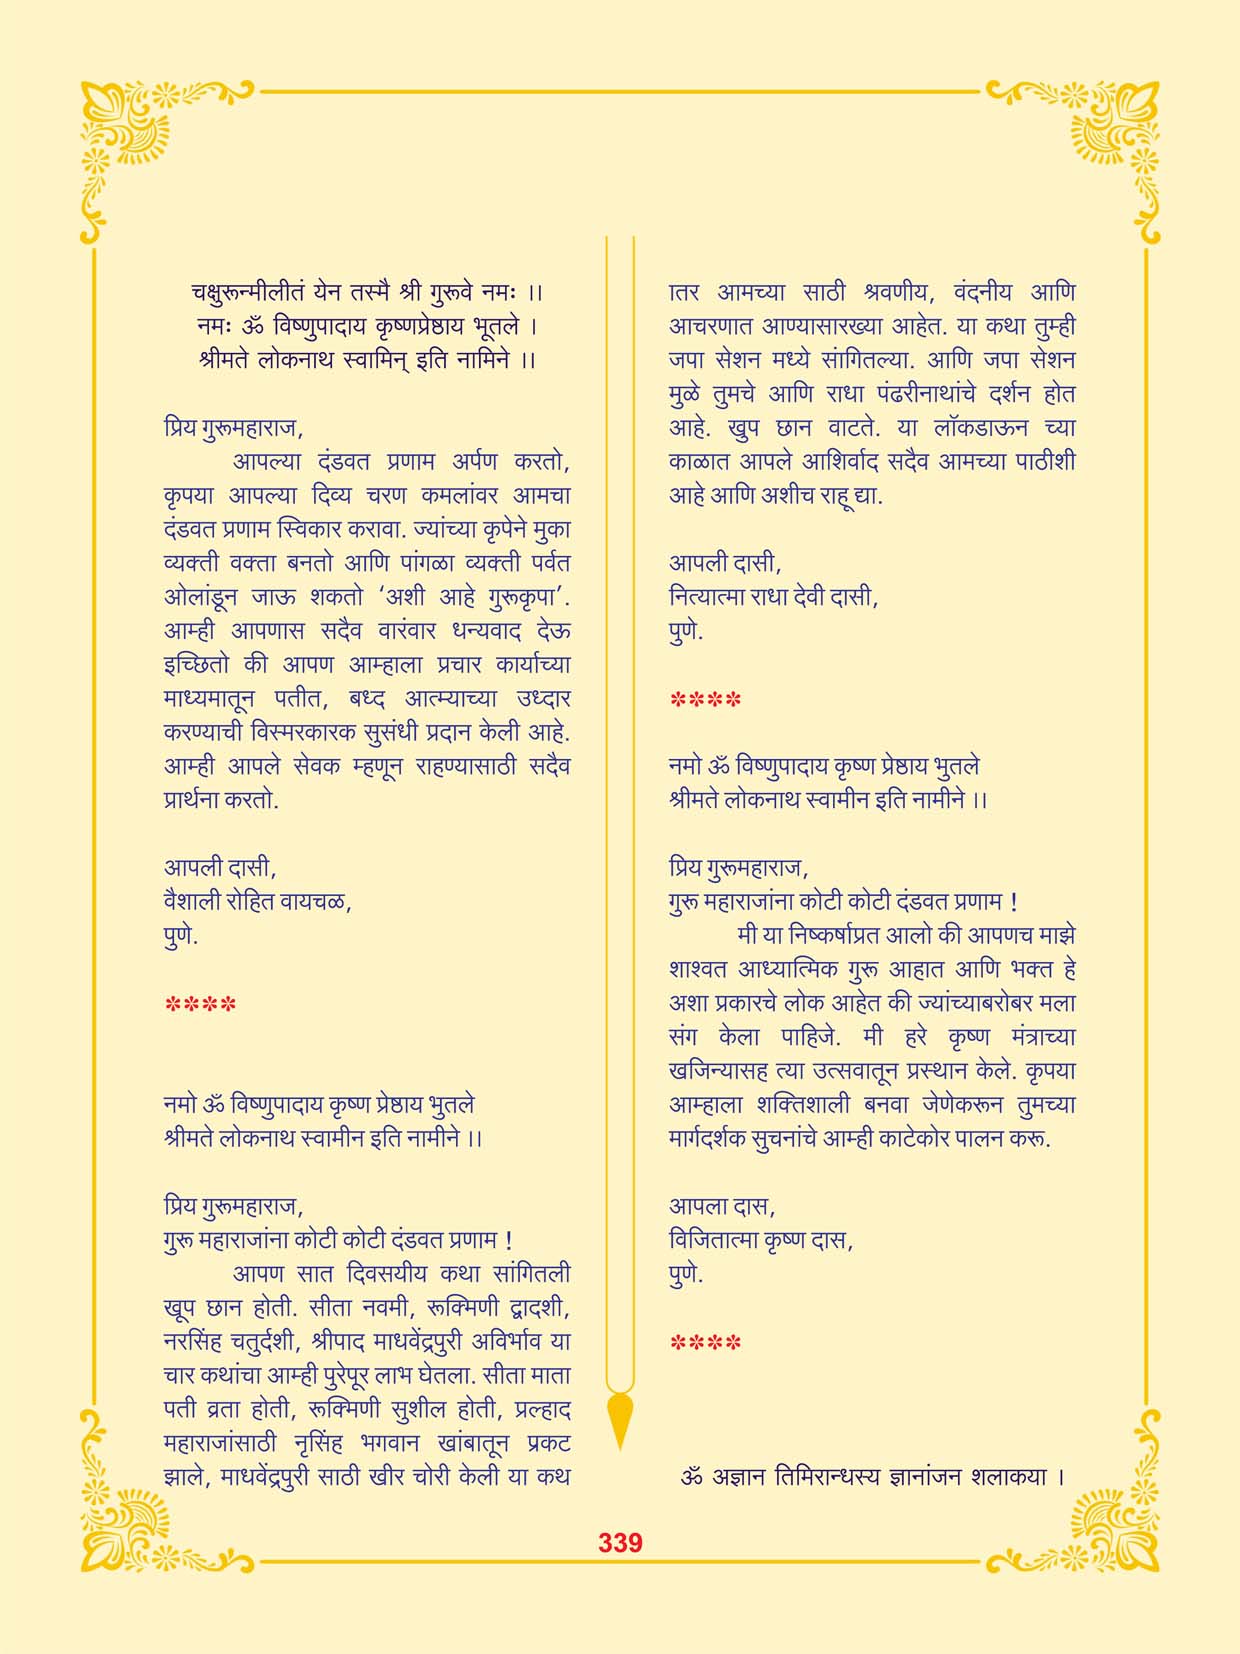 चक्षुरून्मीलीतं येन तस्मै श्री गुरूवे नमः ।।
नमः ॐ विष्णुपादाय कृष्णप्रेष्ठाय भूतले ।
श्रीमते लोकनाथ स्वामिन् इति नामिने ।।
प्रिय गुरूमहाराज,
आपल्या दंडवत प्रणाम अर्पण करतो,
कृपया आपल्या दिव्य चरण कमलांवर आमचा
दंडवत प्रणाम स्विकार करावा. ज्यांच्या कृपेने मुका
व्यक्ती वक्ता बनतो आणि पांगळा व्यक्ती पर्वत
ओलांडून जाऊ शकतो ‘अशी आहे गुरूकृपा’.
आम्ही आपणास सदैव वारंवार धन्यवाद देऊ
इच्छितो की आपण आम्हाला प्रचार कार्याच्या
माध्यमातून पतीत, बध्द आत्म्याच्या उध्दार
करण्याची विस्मरकारक सुसंधी प्रदान केली आहे.
आम्ही आपले सेवक म्हणून राहण्यासाठी सदैव
प्रार्थना करतो.
आपली दासी,
वैशाली रोहित वायचळ,
पुणे.
****
नमो ॐ विष्णुपादाय कृष्ण प्रेष्ठाय भुतले
श्रीमते लोकनाथ स्वामीन इति नामीने ।।
प्रिय गुरूमहाराज,
गुरू महाराजांना कोटी कोटी दंडवत प्रणाम !
आपण सात दिवसयीय कथा सांगितली
खूप छान होती. सीता नवमी, रूक्मिणी द्वादशी,
नरसिंह चतुर्दशी, श्रीपाद माधवेंद्रपुरी अविर्भाव या
चार कथांचा आम्ही पुरेपूर लाभ घेतला. सीता माता
पती व्रता होती, रूक्मिणी सुशील होती, प्रल्हाद
महाराजांसाठी नृसिंह भगवान खांबातून प्रकट
झाले, माधवेंद्रपुरी साठी खीर चोरी केली या कथ
ातर आमच्या साठी श्रवणीय, वंदनीय आणि
आचरणात आण्यासारख्या आहेत. या कथा तुम्ही
जपा सेशन मध्ये सांगितल्या. आणि जपा सेशन
मुळे तुमचे आणि राधा पंढरीनाथांचे दर्शन होत
आहे. खुप छान वाटते. या लॉकडाऊन च्या
काळात आपले आशिर्वाद सदैव आमच्या पाठीशी
आहे आणि अशीच राहू द्या.
आपली दासी,
नित्यात्मा राधा देवी दासी,
पुणे.
****
नमो ॐ विष्णुपादाय कृष्ण प्रेष्ठाय भुतले
श्रीमते लोकनाथ स्वामीन इति नामीने ।।
प्रिय गुरूमहाराज,
गुरू महाराजांना कोटी कोटी दंडवत प्रणाम !
मी या निष्कर्षाप्रत आलो की आपणच माझे
शाश्वत आध्यात्मिक गुरू आहात आणि भक्त हे
अशा प्रकारचे लोक आहेत की ज्यांच्याबरोबर मला
संग केला पाहिजे. मी हरे कृष्ण मंत्राच्या
खजिन्यासह त्या उत्सवातून प्रस्थान केले. कृपया
आम्हाला शक्तिशाली बनवा जेणेकरून तुमच्या
मार्गदर्शक सुचनांचे आम्ही काटेकोर पालन करू.
आपला दास,
विजितात्मा कृष्ण दास,
पुणे.
****
ॐ अज्ञान तिमिरान्धस्य ज्ञानांजन शलाकया ।
339